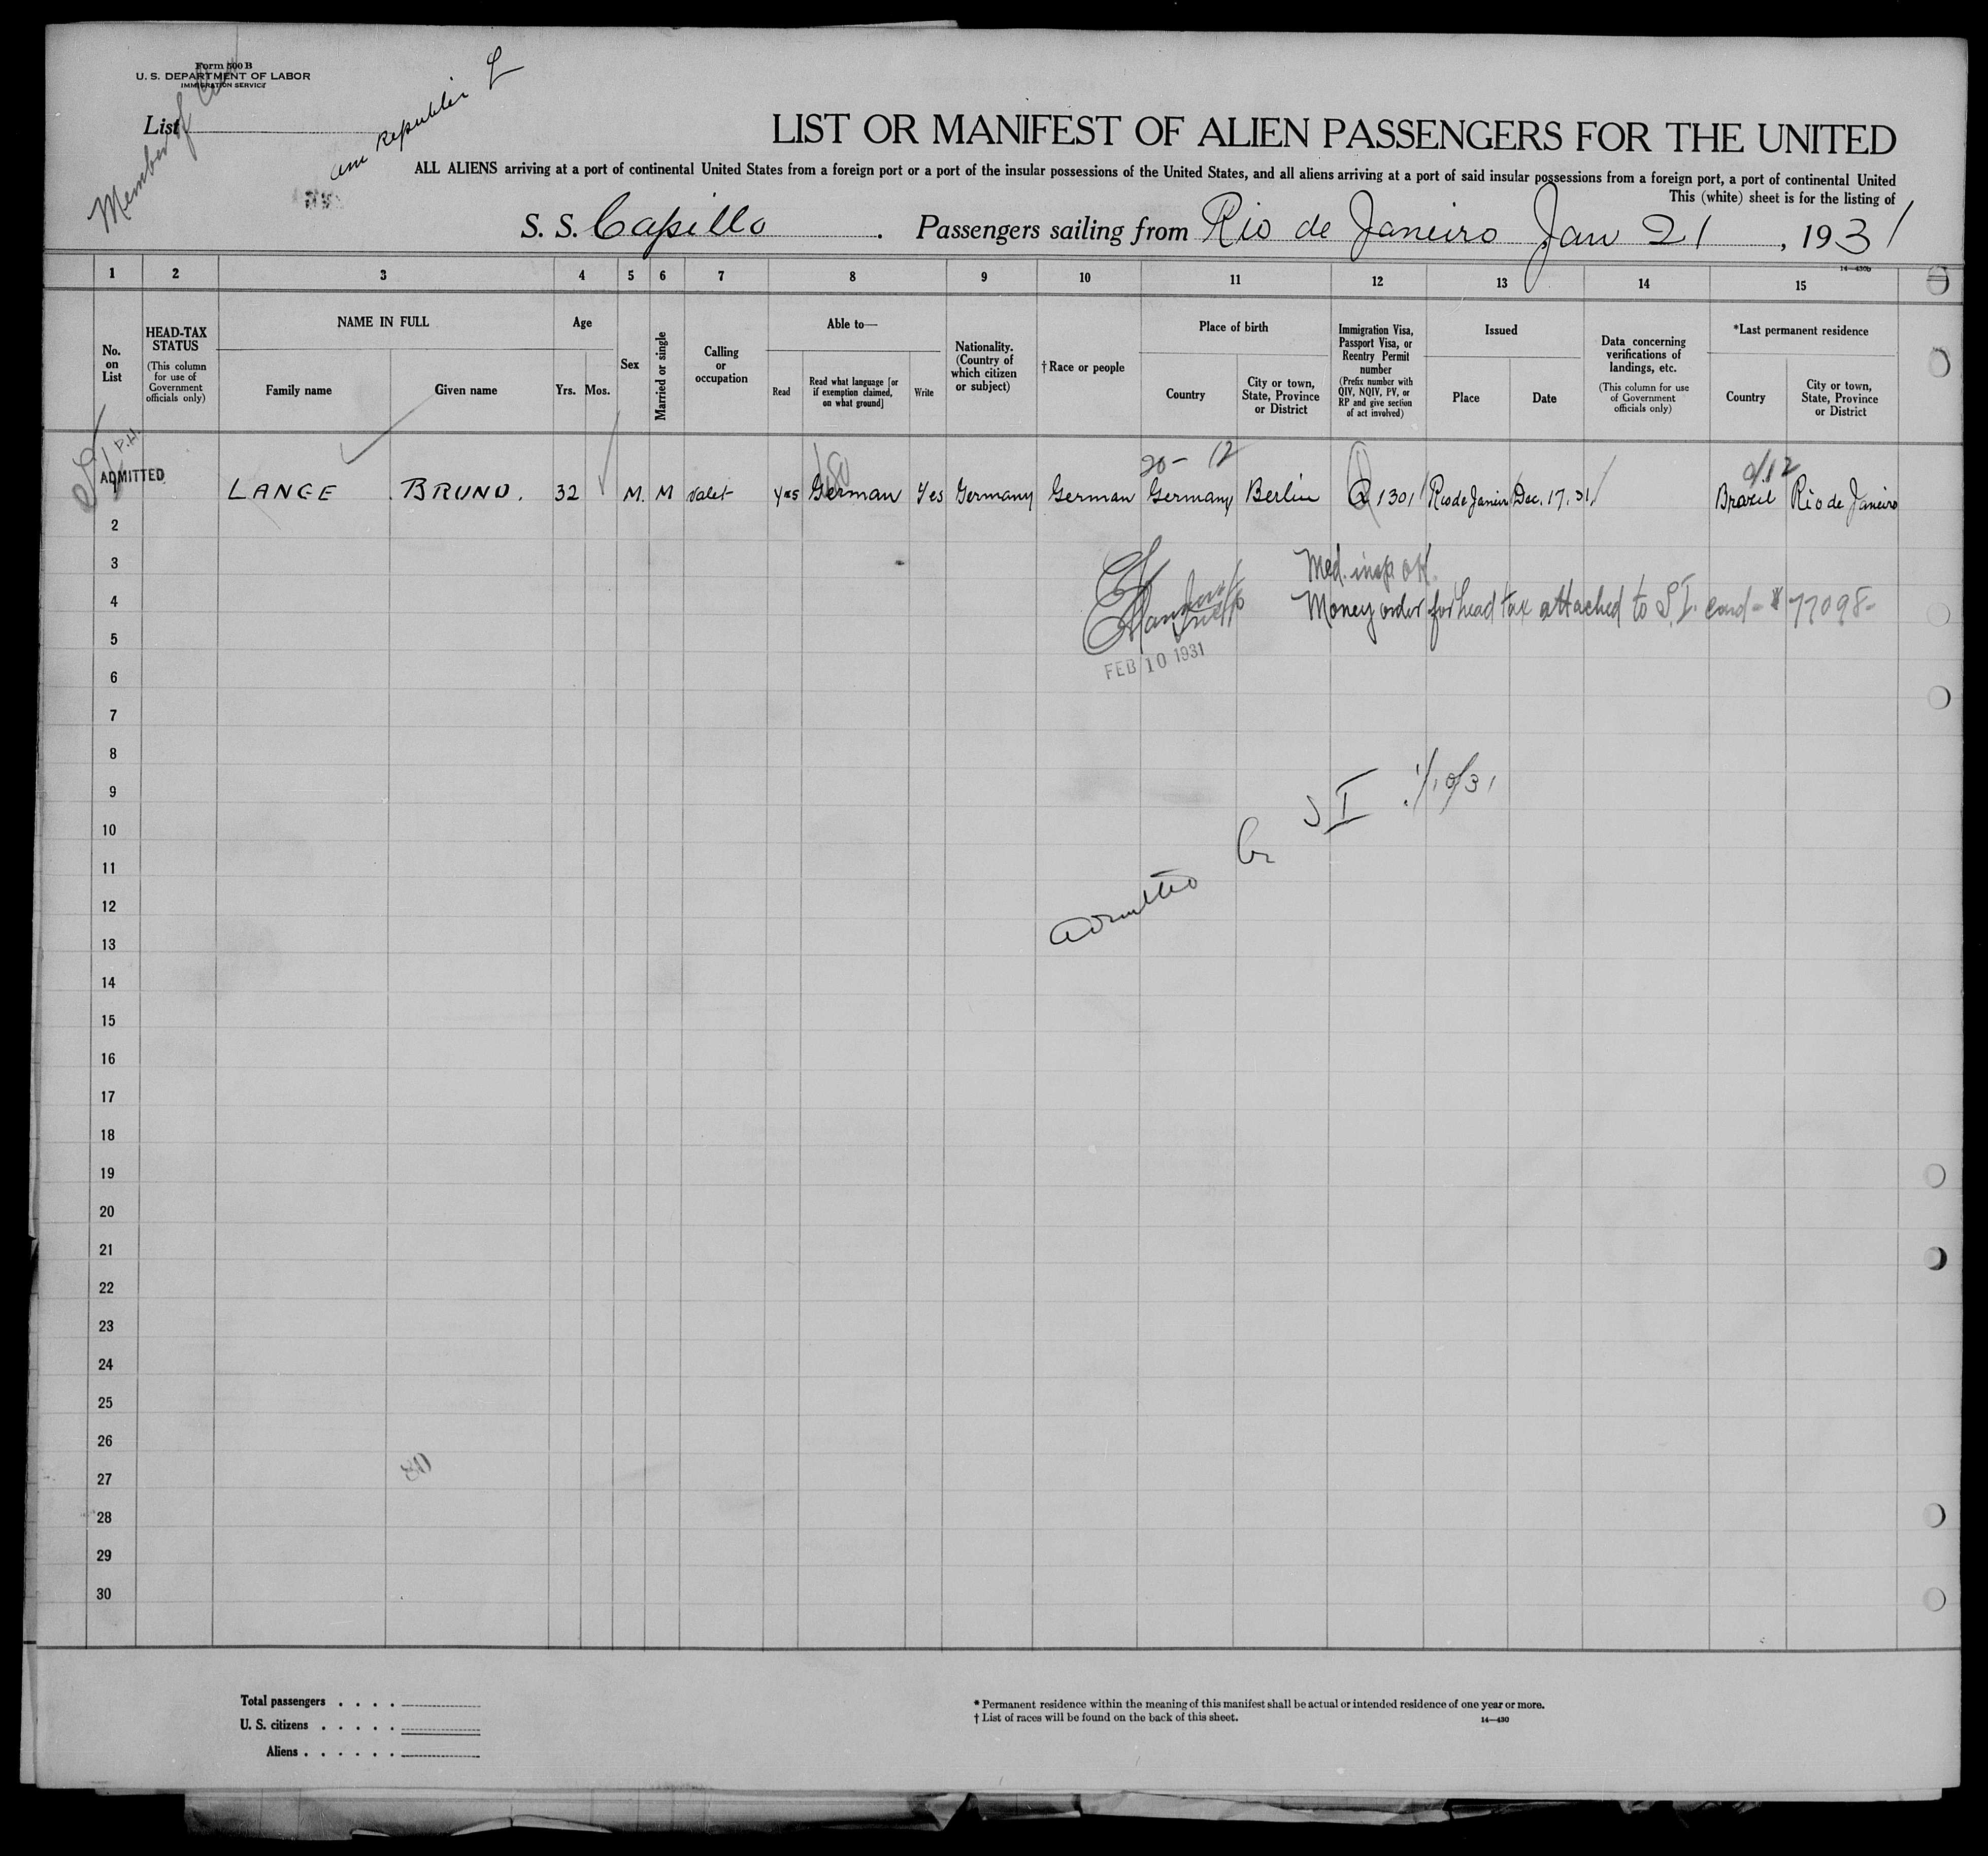 Form 500 B
U. S. DEPARTMENT OF LABOR
IMMIGRATION SERVICE
List
Member of
am republic L
LIST OR MANIFEST OF ALIEN PASSENGERS FOR THE UNITED
ALL ALIENS arriving at a port of continental United States from a foreign port or a port of the insular possessions of the United States, and all aliens arriving at a port of said insular possessions from a foreign port, a port of continental United
This (white) sheet is for the listing of
S. S. Capillo . Passengers sailing from Rio de Janeiro Jan 21 , 1931
14—430b
1 2 3 4 5 6 7 8 9 10 11 12 13 14 15
No. on List
HEAD-TAX STATUS (This column for use of Government officials only)
NAME IN FULL
Family name Given name
Age
Yrs. Mos.
Sex
Married or single
Calling or occupation
Able to—
Read
Read what language [or if exemption claimed, on what ground]
Write
Nationality. (Country of which citizen or subject)
† Race or people
Place of birth
Country
City or town, State, Province or District
Immigration Visa, Passport Visa, or Reentry Permit number (Prefix number with QIV, NQIV, PV, or RP and give section of act involved)
Issued
Place Date
Data concerning verifications of landings, etc. (This column for use of Government officials only)
*Last permanent residence
Country
City or town, State, Province or District
P.H.
20 - 12
ADMITTED LANGE BRUNO. 32 M. M Valet yes German Yes Germany German Germany Berlin Q 1301 Rio de Janeiro Dec. 17. 31 Brazil Rio de Janeiro
2
3
Med. insp. OK.
4
Money order for head tax attached to S.I. card - # 77098-
5
FEB 10 1931
6
7
8
9
10
admitted by S I 1/10/31
11
12
13
14
15
16
17
18
19
20
21
22
23
24
25
26
27
28
29
30
Total passengers . . . .
U. S. citizens . . . . .
Aliens . . . . . .
* Permanent residence within the meaning of this manifest shall be actual or intended residence of one year or more.
† List of races will be found on the back of this sheet.
14—430